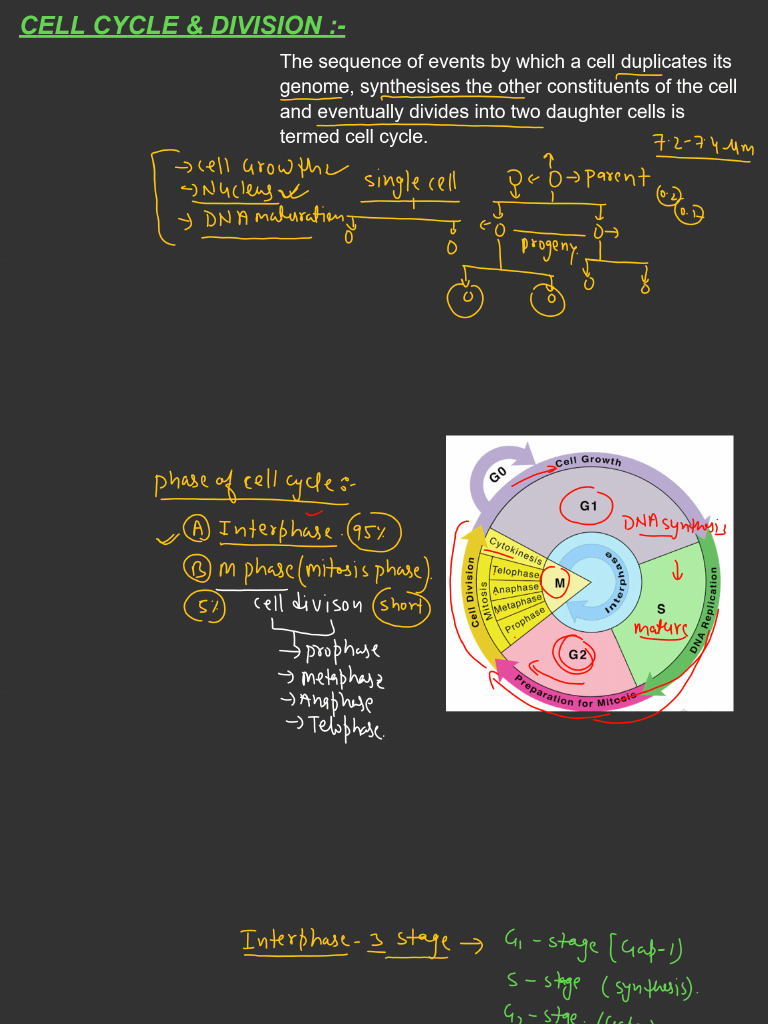 CELL CYCLE & DIVISION :-
The sequence of events by which a cell duplicates its
genome, synthesises the other constituents of the cell
and eventually divides into two daughter cells is
termed cell cycle.
7.2-7.4 µm
→ cell Growth
→ Nucleus
→ DNA maturation
single cell
→ parent
0.2
0.2
progeny
phase of cell cycle :-
(A) Interphase. 95%
(B) M phase (mitosis phase).
5% cell divison short
→ prophase
→ metaphase
→ Anaphase
→ Telophase.
G0
Cell Growth
G1
DNA synthesis
Cytokinesis
Telophase
Anaphase
Metaphase
Prophase
Mitosis
Cell Division
M
Interphase
S
mature
DNA Replication
G2
Preparation for Mitosis
Interphase - 3 stage → G1 - stage [Gap-1)
S - stage (synthesis).
G2 - stge.